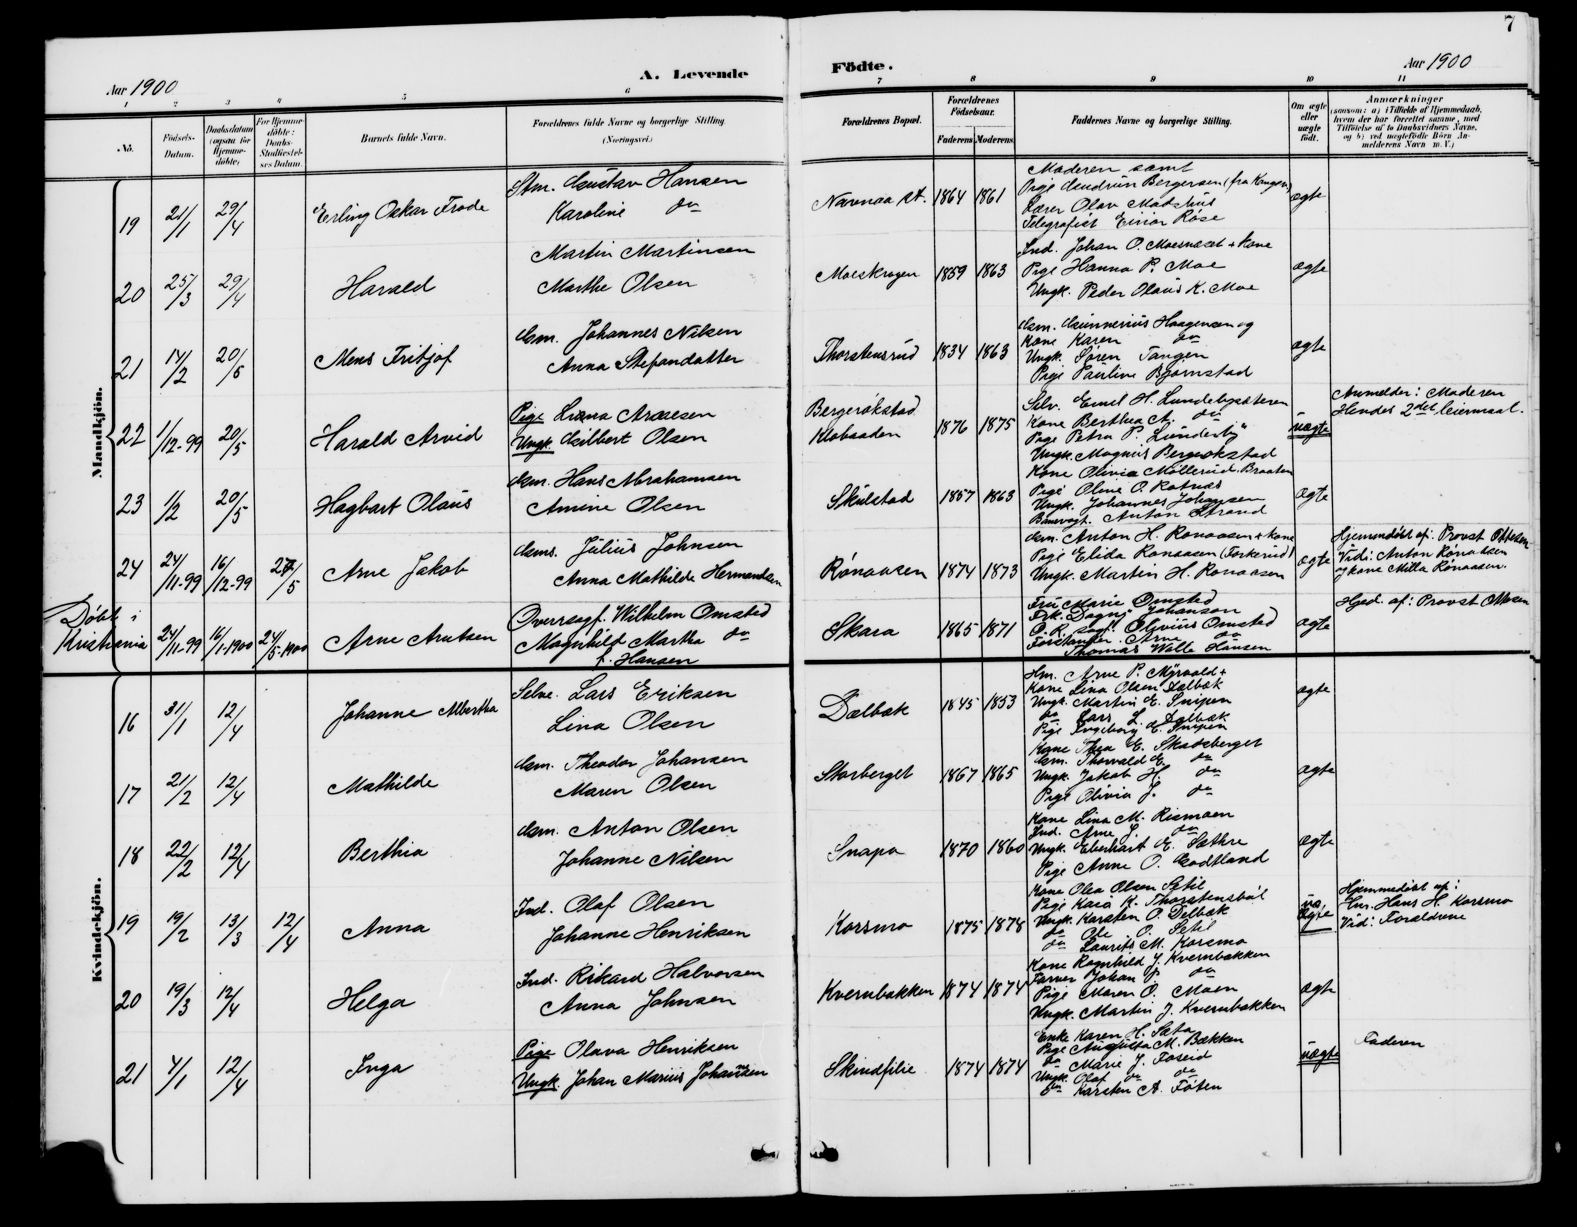 7
Aar 1900
A. Levende
Fødte.
Aar 1900
1 2 3 4 5 6 7 8 9 10 11
No.
Fødsels-Datum.
Daabsdatum (ogsaa for Hjemmedøbte)
For Hjemmedøbte: Daabs-Stadfæstelses Datum.
Barnets fulde Navn.
Forældrenes fulde Navne og borgerlige Stilling (Næringsvei.)
Forældrenes Bopæl.
Forældrenes Fødselsaar.
Faderens Moderens.
Faddernes Navne og borgerlig Stilling.
Om ægte eller uægte født.
Anmærkninger
(saasom: a) i Tilfælde af Hjemmedaab, hvem der har forrettet samme, med Tilføielse af to Daabsvidners Navne, og b) ved uægtefødte Børn Anmelderens Navn m. V.)
Mandkjön.
19 21/1 29/4 Erling Oskar Frode
Stm. Gustav Hansen
Karoline do
Navnaa st. 1864 1861
Moderen samt
Pige Gudrun Bergersen (fra Kongsv)
Lærer Olav Madshus
Telegrafist Einar Røse
ægte
20 25/3 29/4 Harald
Martin Martinsen
Marthe Olsen
Moeskrogen 1859 1863
Ind. Johan O. Moesnæset + kone
Pige Hanna P. Moe
Ungk. Peder Olaus K. Moe
ægte
21 14/2 20/5 Mens Fritjof
Gm. Johannes Nilsen
Anna Stefansdatter
Thorstensrud 1834 1863
Gm. Gunnerius Haagensen og
Kone Karen do
Ungk. Søren Tangen
Pige Pauline Bjørnstad
ægte
22 1/12-99 20/5 Harald Arvid
Pige Liana Arnesen
Ungk. Gilbert Olsen
Bergerøkstad
Klobaaden 1876 1875
Selv. Emil H. Lundebysæteren
Kone Berthea A. do
Pige Petra P. Lunderby
Ungk. Magnus Bergerøkstad
Kone Olivia Møllerud Braaten
uægte
Anmelder: Moderen
Hendes 2det leiermaal.
23 1/2 20/5 Hagbart Olaus
Gm. Hans Abrahamsen
Amine Olsen
Skulstad 1857 1863
Pige Oline O. Rotnæs
Ungk. Johannes Johnsen
Banevogt. Anton Strand
ægte
24 24/11-99 16/12-99 27/5 Arne Jakob
Gms. Julius Johnsen
Anna Mathilde Hermansen
Rønaasen 1874 1873
Gm. Anton H. Ronaasen + kone
Pige Elida Ronaasen (Forkerud)
Ungk. Martin H. Ronaasen
ægte
Hjemmedøbt af: Provst Ottesen
Vid: Anton Rønaasen
og kone Milla Rønaasen.
Døbt i
Kristiania 24/11-99 16/1-1900 24/5-1900 Arne Knutsen
Overrsagf. Wilhelm Omsted
Magnhild Martha do
f. Hansen
Skara 1865 1871
Fru Marie Omsted
Frk. Dagny Johanson
O.R. sagf. Olivius Omsted
Forstander Arne do
Thomas Wille Hansen
ægte
Hjed. af: Provst Ottesen
Kvindekjön.
16 31/1 12/4 Johanne Albertha
Selve. Lars Eriksen
Lina Olsen
Dælbæk 1845 1853
Hm. Arne P. Myrvold +
Kone Lina Olsen Dælbæk
Ungk. Martin E. Snipen
do Lars L. Dælbæk
Pige Ingeborg E. Snipen
ægte
17 21/2 12/4 Mathilde
Gm. Theodor Johansen
Maren Olsen
Storberget 1867 1865
Kone Thea E. Skadsberget
Gm. Thorvald E. do
Ungk. Jakob H. do
Pige Olivia J. do
ægte
18 22/2 12/4 Berthia
Gm. Anton Olsen
Johanne Nilsen
Snapa 1870 1860
Kone Lina M. Rismoen
Ind. Arne J. do
Ungk. Eberhart E. Sæthre
Pige Anne O. Godtland
ægte
19 19/2 13/3 12/4 Anna
Ind. Olaf Olsen
Johanne Henriksen
Korsmo 1875 1878
Kone Olea Olsen Sætil
Pige Kaia K. Thorstensbøl
Ungk. Karsten O. Delbæk
do Ole O. Sætil
do Laurits M. Korsmo
uægte
Hjemmedøbt af:
Gm. Hans H. Korsmo
Vid: Forældrene
20 19/3 12/4 Helga
Ind. Rikard Halvorsen
Anna Johnsen
Kvernbakken 1874 1874
Kone Ragnhild J. Kvernbakken
Farver Johan J. do
Pige Maren O. Moen
Ungk. Martin J. Kvernbakken
ægte
21 4/1 12/4 Inga
Pige Olava Henriksen
Ungk. Johan Marius Johannsen
Skindfilie 1874 1874
Enke Karen H. Sæta
Pige Augusta M. Bækken
do Marie J. Foseid
Ungk. Olaf do do
do Karsten A. Føten
uægte
Faderen